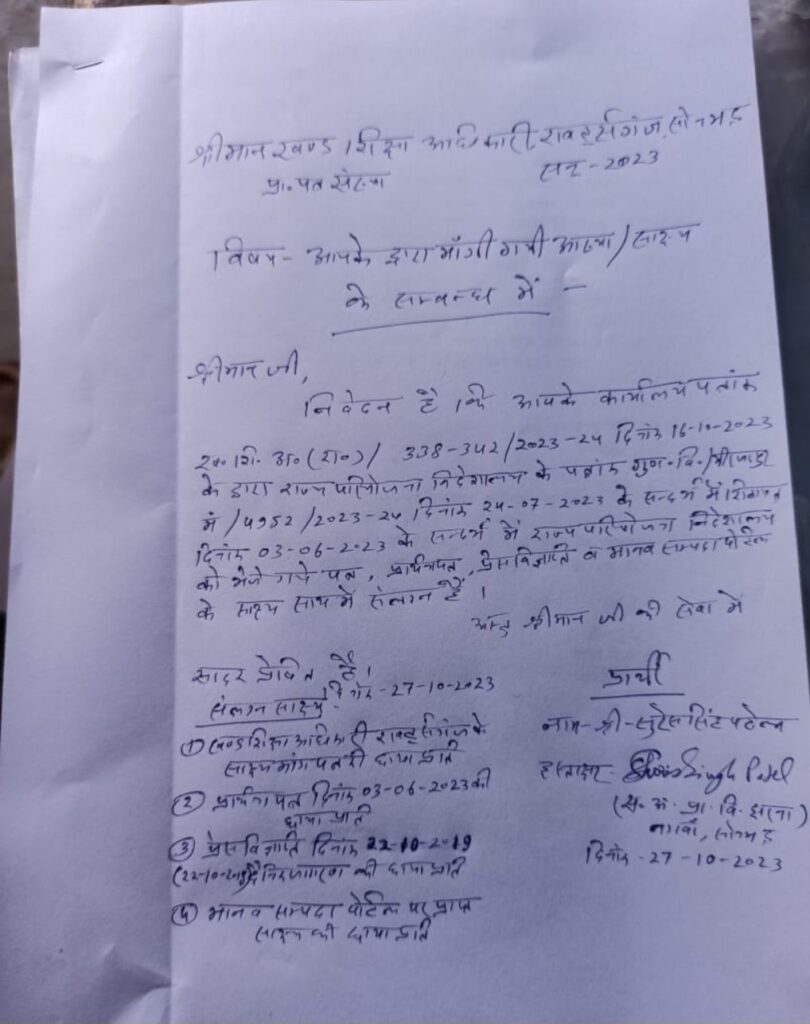 श्रीमान खण्ड शिक्षा अधिकारी रावर्ट्सगंज, सोनभद्र
प्रा. पत्र संख्या सन् - 2023
विषय - आपके द्वारा माँगी गयी आख्या / साक्ष्य
के सम्बन्ध में -
श्रीमान जी,
निवेदन है कि आपके कार्यालय पत्रांक
ख०. शि. अ० (रा०) / 338-342 / 2023-24 दिनांक 16-10-2023
के द्वारा राज्य परियोजना निदेशालय के पत्रांक गुण. वि. /
में / 4952 / 2023-24 दिनांक 24-07-2023 के सन्दर्भ में शिकायत
दिनांक 03-06-2023 के सन्दर्भ में राज्य परियोजना निदेशालय
को भेजे गये पत्र, प्रार्थनापत्र, प्रेस विज्ञप्ति व मानव सम्पदा पोर्टल
के साक्ष्य साथ में संलग्न हैं।
अस्तु श्रीमान जी की सेवा में
सादर प्रेषित है।
दिनांक - 27-10-2023
संलग्न साक्ष्य
① खण्ड शिक्षा अधिकारी रावर्ट्सगंज के
साक्ष्य मांग पत्र की छाया प्रति
② प्रार्थना पत्र दिनांक 03-06-2023 की
छाया प्रति
③ प्रेस विज्ञप्ति दिनांक 22-10-2019
दैनिक जागरण की छाया प्रति
④ मानव सम्पदा पोर्टल पर प्राप्त
साक्ष्य की छाया प्रति
प्रार्थी
नाम - श्री - सुरेस सिंह पटेल
हस्ताक्षर - Singh Patel
(स. अ. प्रा. वि. झरना)
नगवाँ, सोनभद्र
दिनांक - 27-10-2023